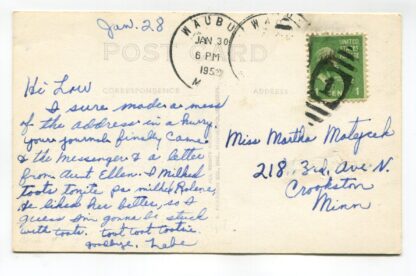 Jan. 28
WAUBU
JAN 30
6 PM
195
M
WAUBU
UNITED STATES
1
POST CARD
CORRESPONDENCE
Hi Low
I sure made a mess
of the address in a hurry.
your journals finely came
& the Messenger & a letter
from Aunt Ellen. I milked
toots tonite pa milked Rolene,
He liked her better, so I
guess Im gonna be stuck
with toots. toot toot tootsie
goodbye.
Miss Martha
218 3rd. Ave N.
Crookston
Minn